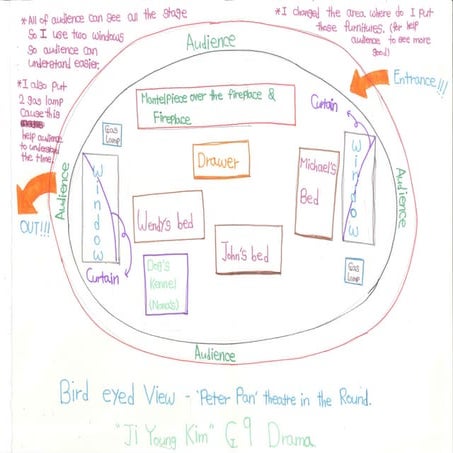 *All of audience can see all the stage
So I use two windows
So audience can
understand easier.
*I also put
2 gas lamp
Cause this
help audience
to understand
the time.
*I changed the area where do I put
these furnitures. (for help
audience to see more
good)
Audience
Entrance!!!
Curtain
Mantelpiece over the fireplace &
Fireplace
Gas
Lamp
Drawer
Michael's
Bed
Window
Audience
Window
Audience
OUT!!!
Wendy's bed
John's bed
Curtain
Dog's
Kennel
(Nana's)
Gas
Lamp
Audience
Bird eyed View - 'Peter Pan' theatre in the Round.
"Ji Young Kim" G9 Drama